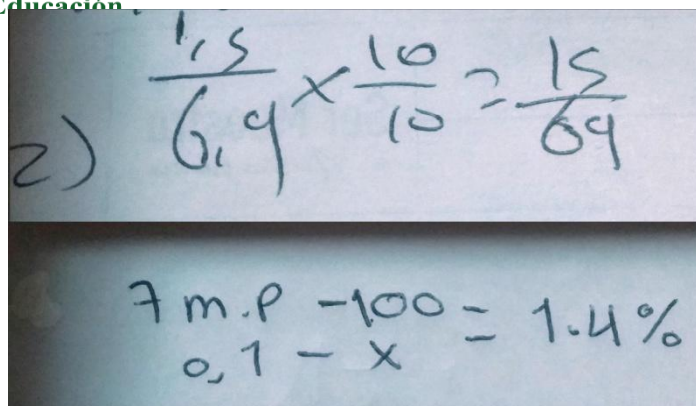 Educación
2) 1,5/6,9 × 10/10 = 15/69
7 m.p - 100 = 1.4%
0,1 - x